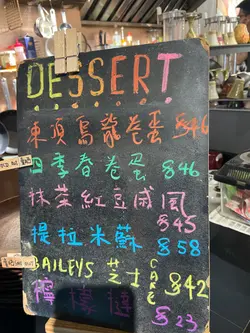 DESSERT
東頂烏龍卷蛋 $46
四季春卷蛋 $46
抹茶紅豆戚風
$45
提拉米蘇 $58
BAILEYS 芝士 CAKE $42
檸檬撻
$23